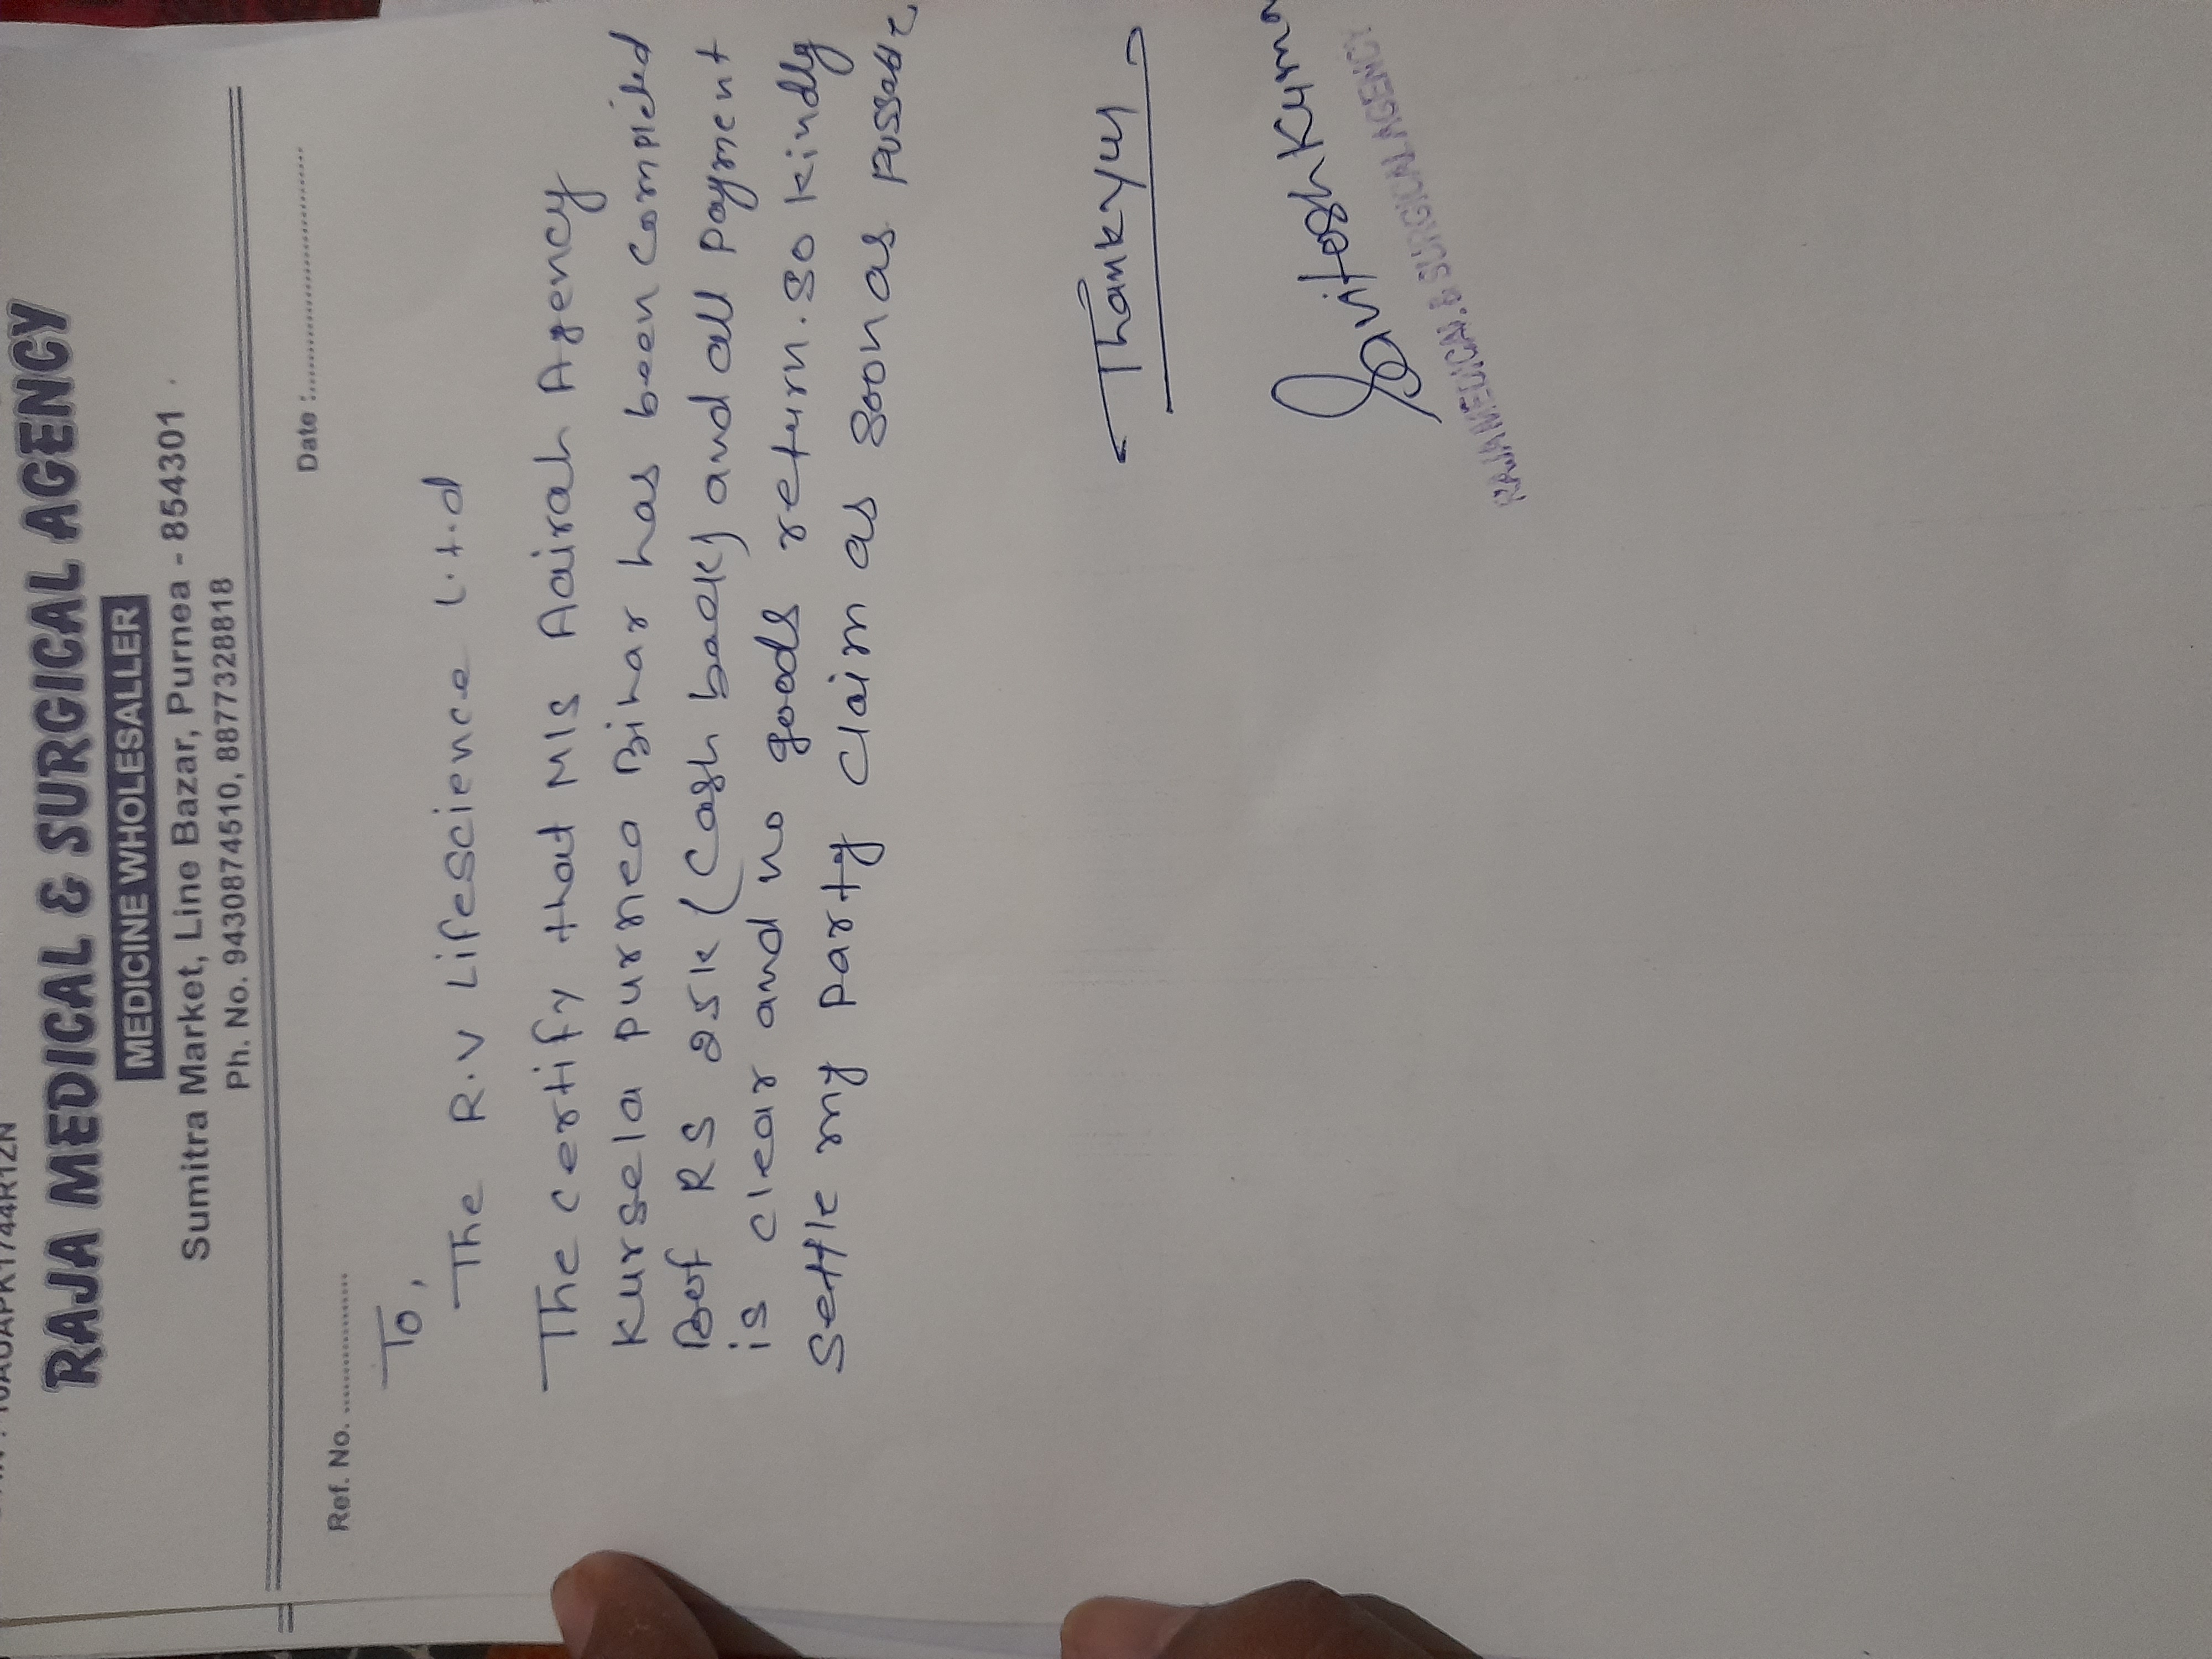 RAJA MEDICAL & SURGICAL AGENCY
MEDICINE WHOLESALLER
Sumitra Market, Line Bazar, Purnea - 854301
Ph. No. 9430874510, 8877328818
Ref. No. Date :
To,
The R.V Lifescience Ltd
The certify that M/S Aairah Agency
Kursela purnea Bihar has been completed
RS 25k (Cash back) and all Payment
is clear and no goods return. so kindly
settle my party claim as soon as Pussable
Thankyou
Kumar
RAJA MEDICAL & SURGICAL AGENCY